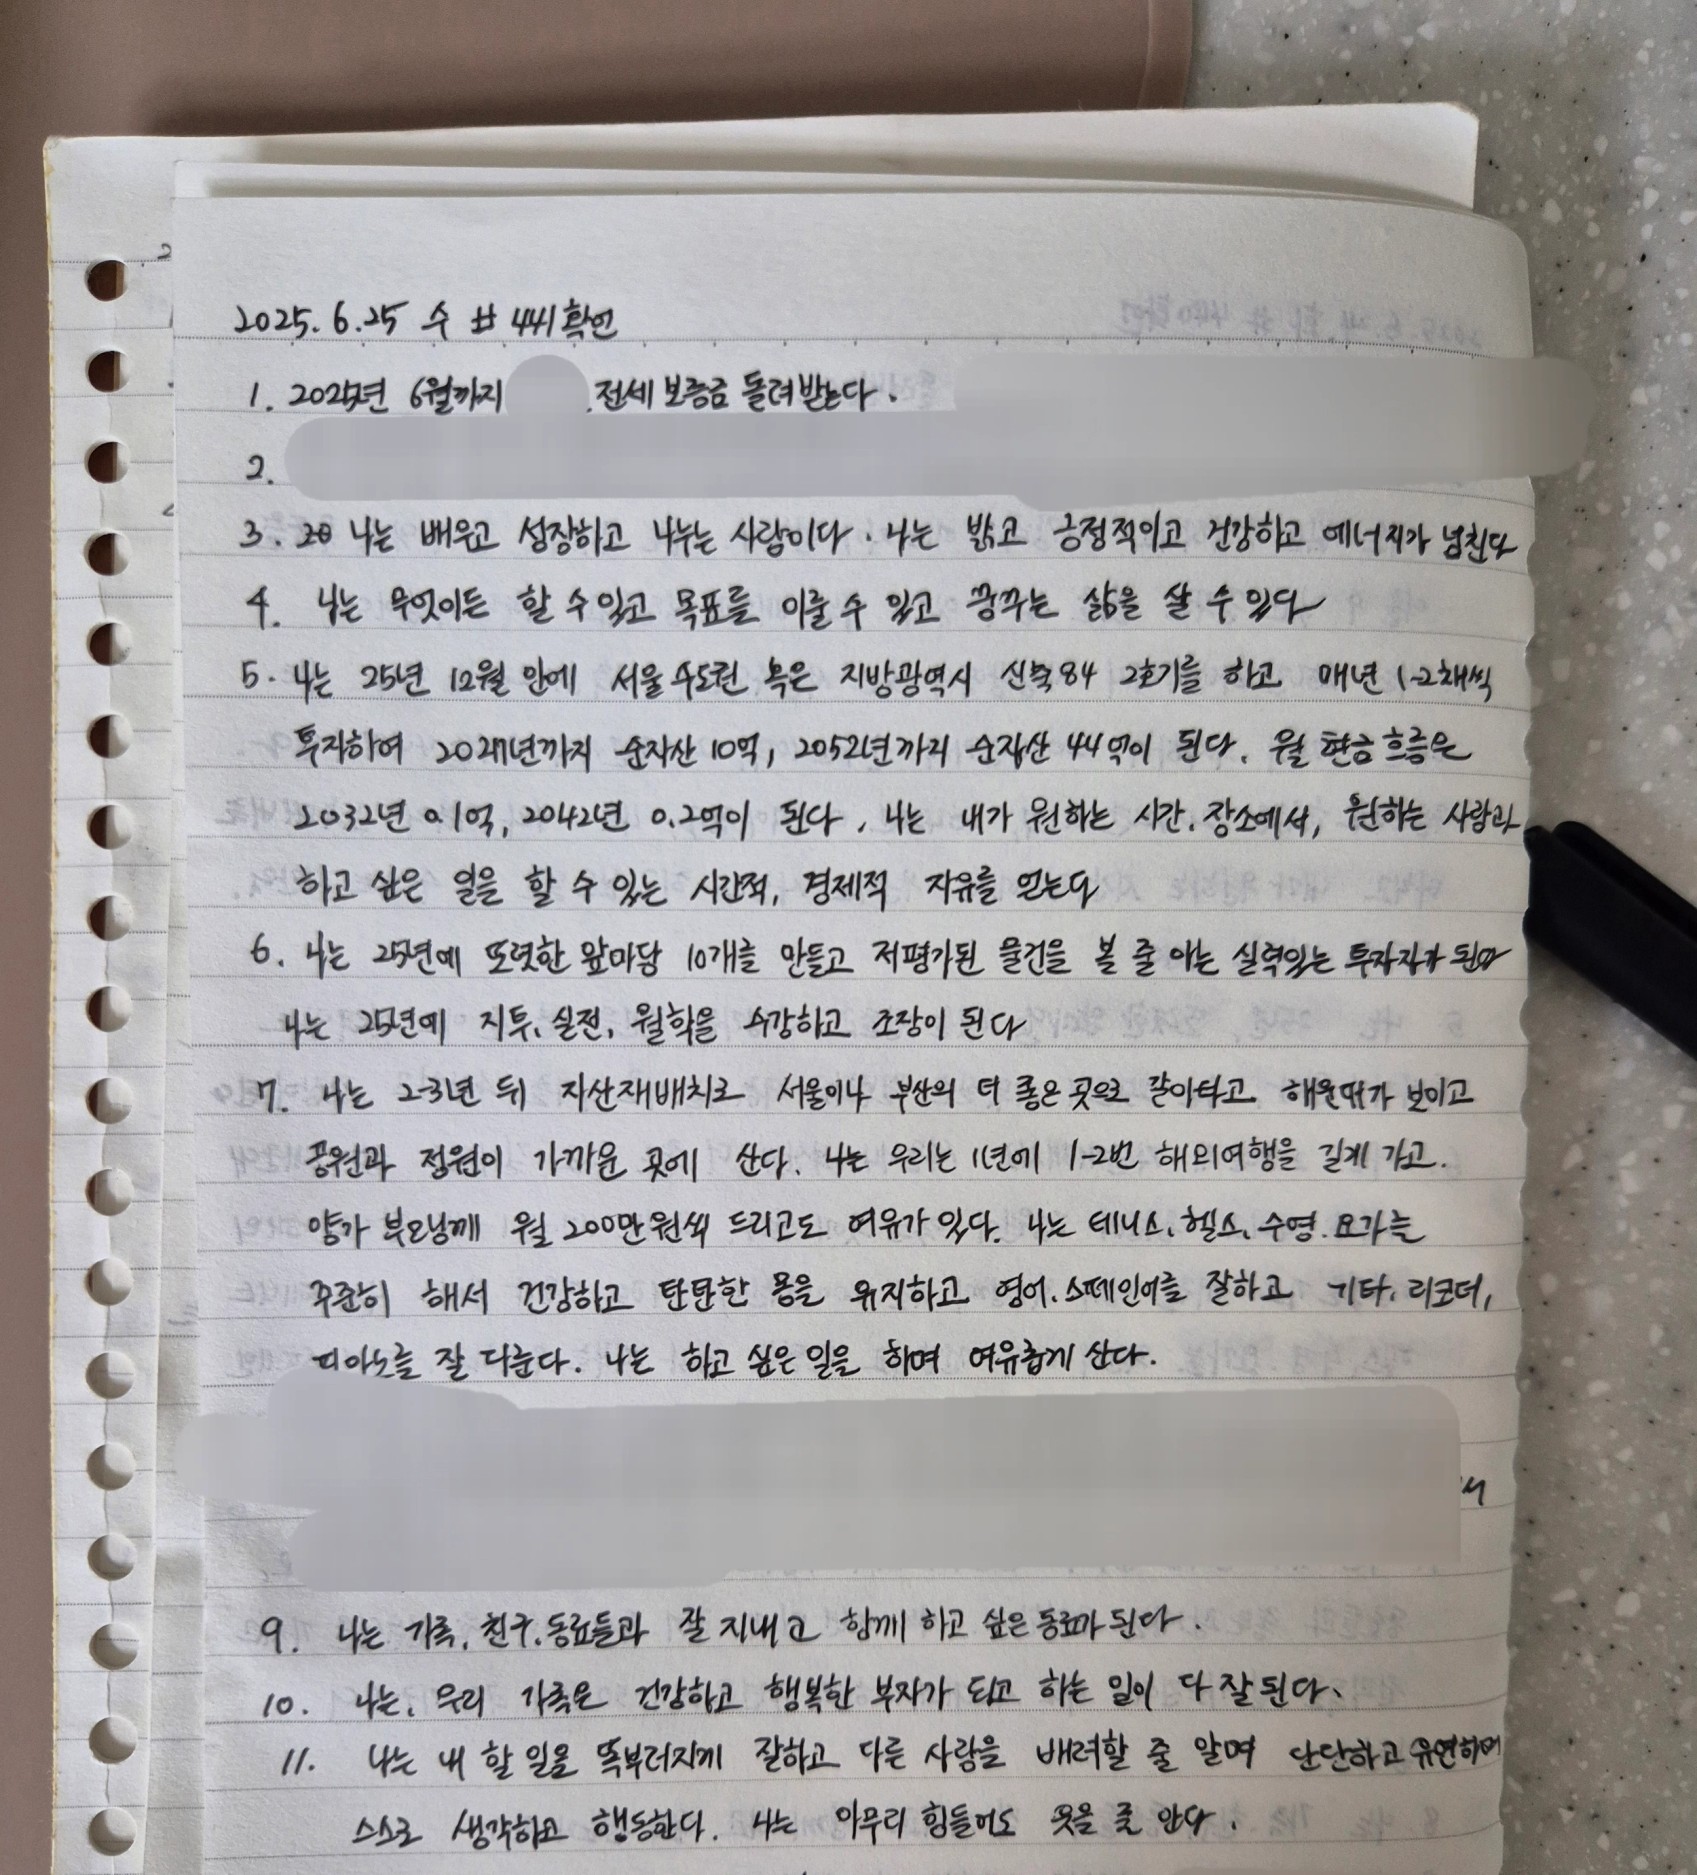 2025. 6. 25 수 # 441 확언
1. 2025년 6월까지 . 전세 보증금 돌려받는다.
2.
3. 나는 배우고 성장하고 나누는 사람이다. 나는 밝고 긍정적이고 건강하고 에너지가 넘친다
4. 나는 무엇이든 할 수 있고 목표를 이룰 수 있고 꿈꾸는 삶을 살 수 있다
5. 나는 25년 12월 안에 서울 수도권 혹은 지방광역시 신축 84 2호기를 하고 매년 1-2채씩
투자하여 2027년까지 순자산 10억, 2052년까지 순자산 44억이 된다. 월 현금흐름은
2032년 0.1억, 2042년 0.2억이 된다. 나는 내가 원하는 시간. 장소에서, 원하는 사람과
하고 싶은 일을 할 수 있는 시간적, 경제적 자유를 얻는다
6. 나는 25년에 또렷한 앞마당 10개를 만들고 저평가된 물건을 볼 줄 아는 실력있는 투자자가 된다
나는 25년에 지투, 실전, 월학을 수강하고 조장이 된다
7. 나는 2-3년 뒤 자산재배치로 서울이나 부산의 더 좋은 곳으로 갈아타고 해운대가 보이고
공원과 정원이 가까운 곳에 산다. 나는 우리는 1년에 1-2번 해외여행을 길게 가고.
양가 부모님께 월 200만원씩 드리고도 여유가 있다. 나는 테니스, 헬스, 수영. 요가를
꾸준히 해서 건강하고 탄탄한 몸을 유지하고 영어. 스페인어를 잘하고 기타, 리코더,
피아노를 잘 다룬다. 나는 하고 싶은 일을 하며 여유롭게 산다.
9. 나는 가족, 친구, 동료들과 잘 지내고 함께 하고 싶은 동료가 된다.
10. 나는, 우리 가족은 건강하고 행복한 부자가 되고 하는 일이 다 잘 된다.
11. 나는 내 할 일을 똑부러지게 잘하고 다른 사람을 배려할 줄 알며 단단하고 유연하며
스스로 생각하고 행동한다. 나는 아무리 힘들어도 웃을 줄 안다.